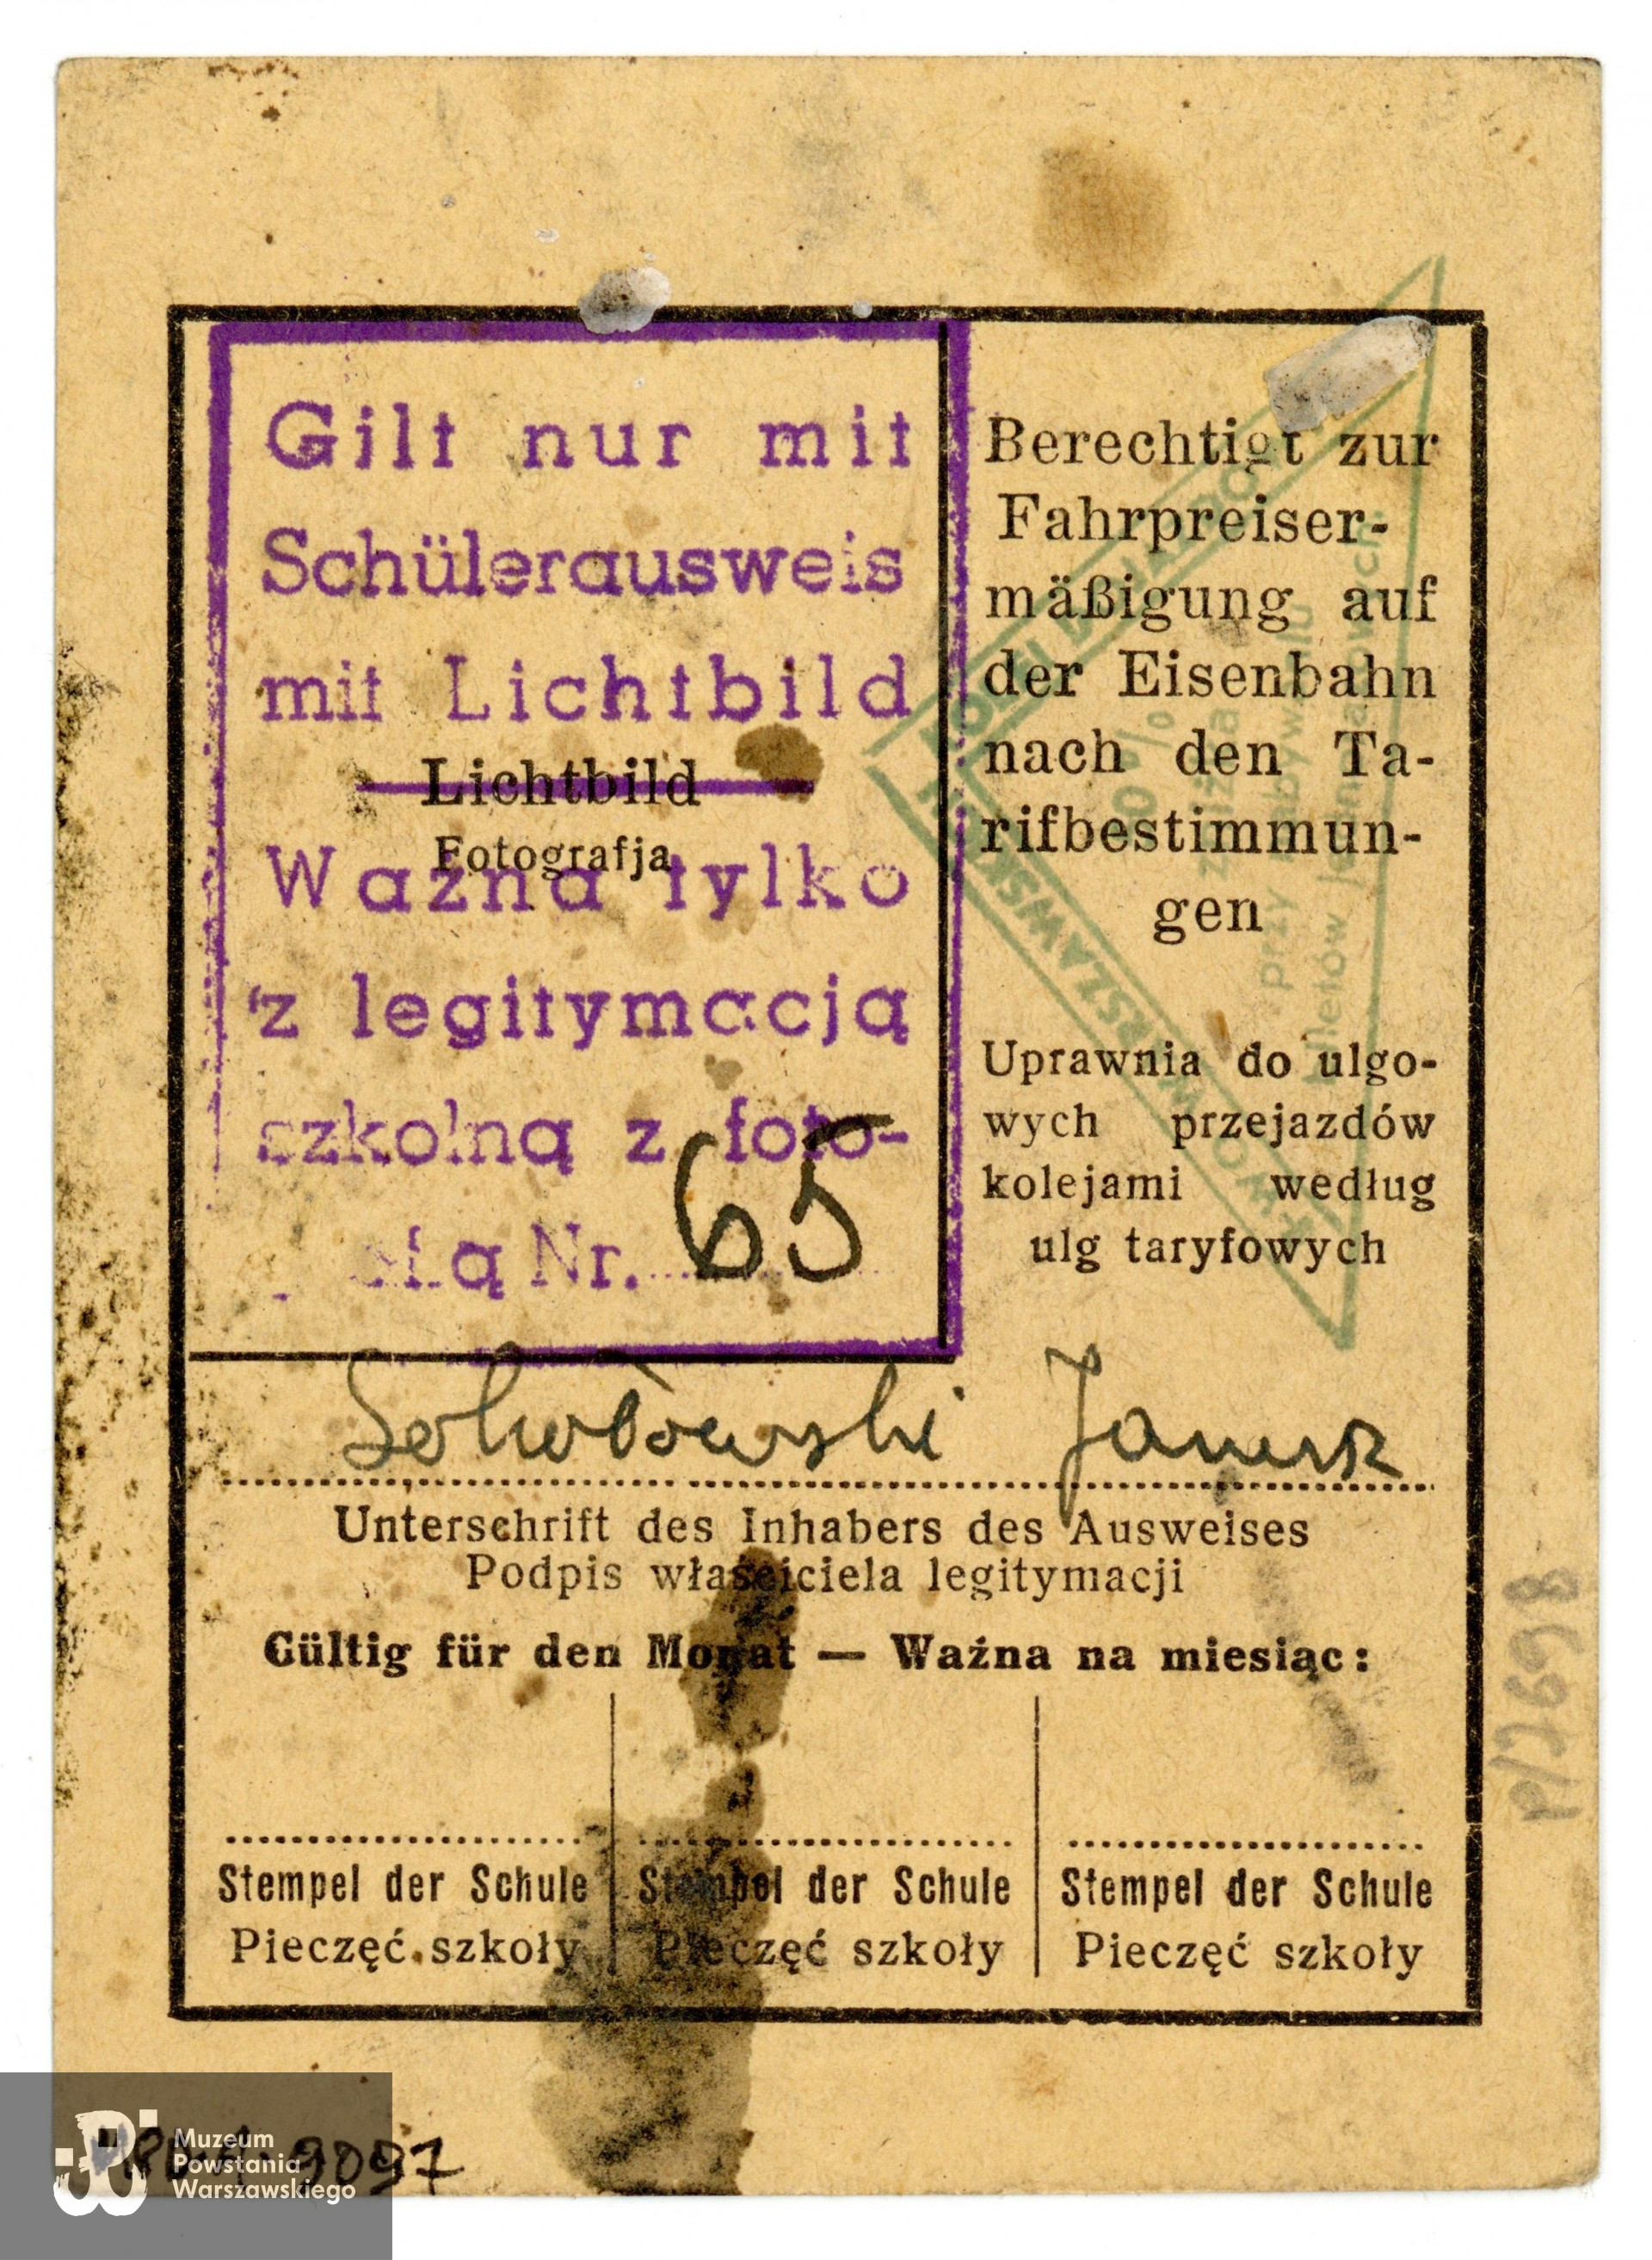 Gilt nur mit
Schülerausweis
mit Lichtbild
Lichtbild
Fotografja
Ważna tylko
z legitymacją
szkolną z foto-
Nr. 65
Berechtigt zur
Fahrpreiser-
mäßigung auf
der Eisenbahn
nach den Ta-
rifbestimmun-
gen
Uprawnia do ulgo-
wych przejazdów
kolejami według
ulg taryfowych
przy nabywaniu
biletów
Sokołowski Janusz
Unterschrift des Inhabers des Ausweises
Podpis właściciela legitymacji
Gültig für den Monat — Ważna na miesiąc:
Stempel der Schule
Pieczęć szkoły
Stempel der Schule
Pieczęć szkoły
Stempel der Schule
Pieczęć szkoły
P/7698
9097
Muzeum
Powstania
Warszawskiego